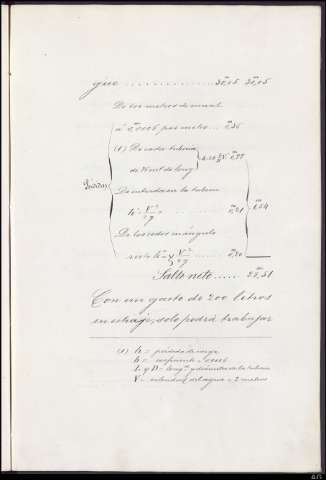 que ........... 30,05 30,05
De los metros de canal
á 0,0006 por metro ... 0,26
(1) De cada tubería
de 75 mt de long
Pérdidas De entrada en la tubería
h = V²/2g = ..... 0,21
De los codos en ángulo
recto h = V²/2g ..... 0,20
Salto neto ..... 28,51
Con un gasto de 200 litros
en estiaje, solo podrá trabajar
(1) h = pérdida de carga
b = coeficiente
L y D = long. y diámetro de la tubería
V = velocidad del agua = 2 metros